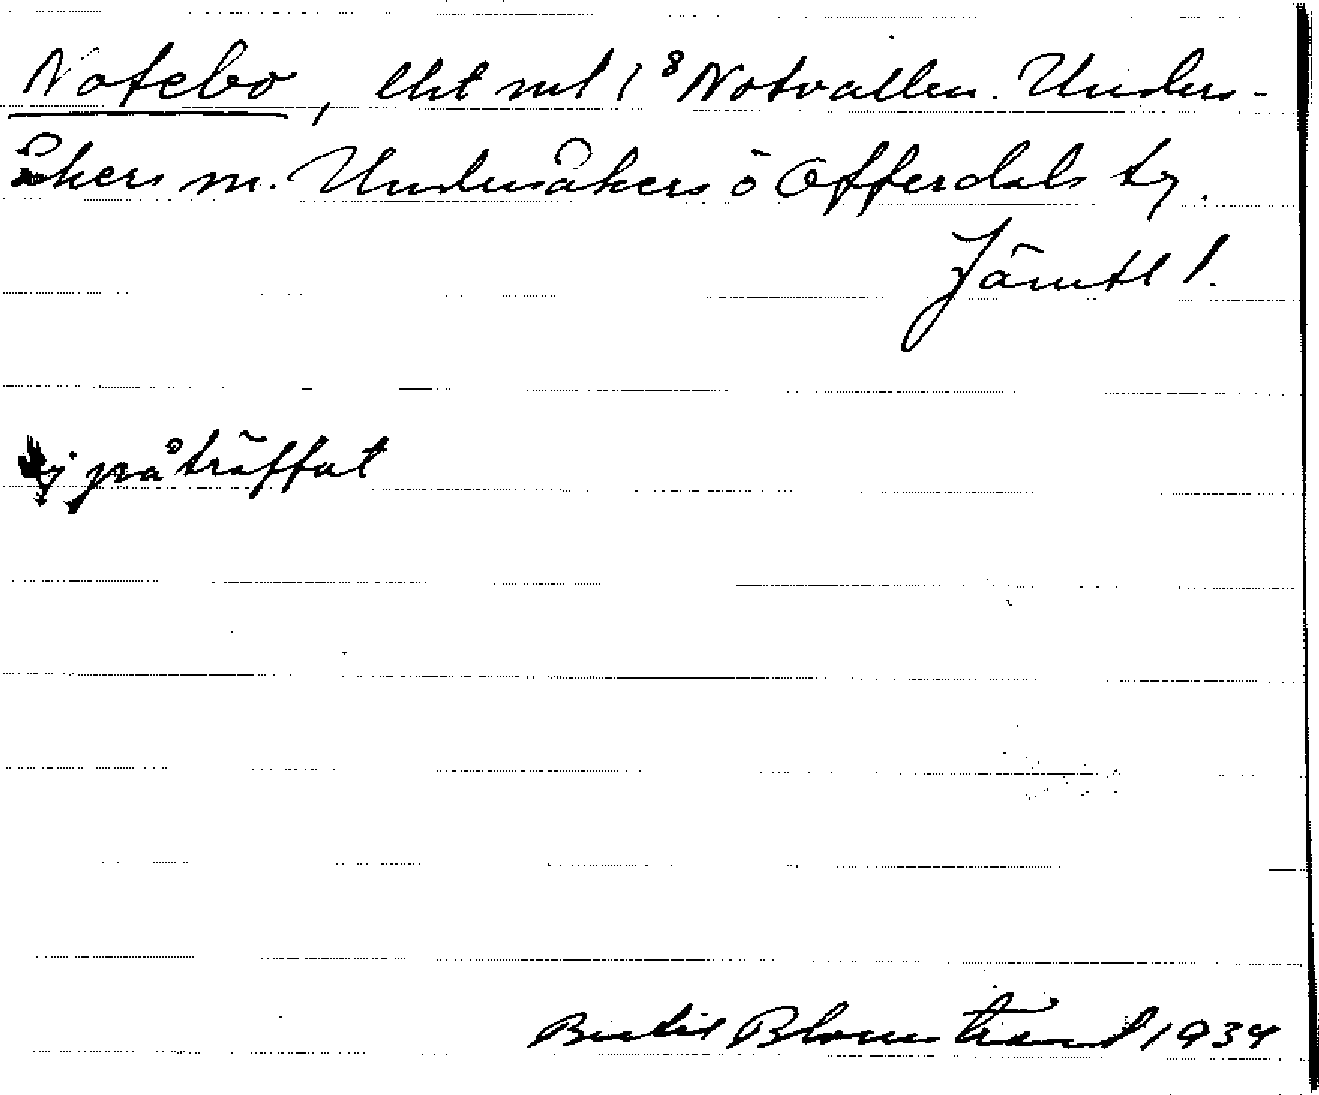 Notebo, lht mt 1⁸ Notvallen. Unders-
åkers sn. Undersåkers o Offerdals tg.
Jämtl l.
Ej påträffat
Bertil Blomstrand 1934